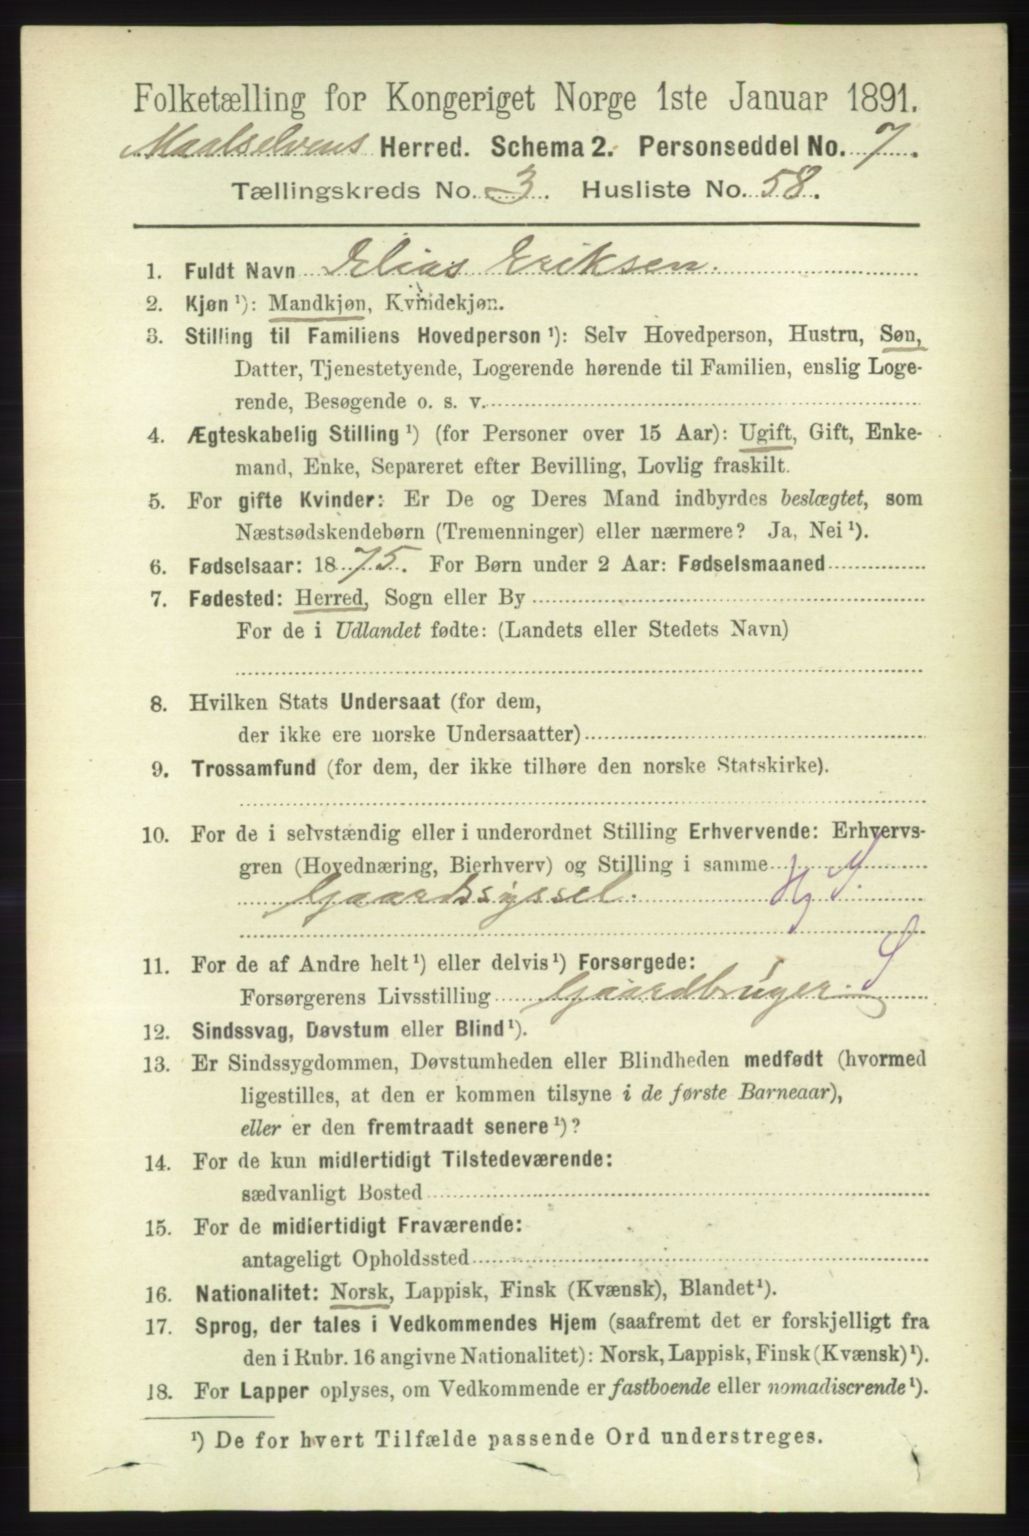 Folketælling for Kongeriget Norge 1ste Januar 1891.
Maalselvens Herred. Schema 2. Personseddel No. 7.
Tællingskreds No. 3. Husliste No. 58.
1. Fuldt Navn Elias Eriksen.
2. Kjøn ¹): Mandkjøn, Kvindekjøn.
3. Stilling til Familiens Hovedperson ¹): Selv Hovedperson, Hustru, Søn,
Datter, Tjenestetyende, Logerende hørende til Familien, enslig Loge-
rende, Besøgende o. s. v.
4. Ægteskabelig Stilling ¹) (for Personer over 15 Aar): Ugift, Gift, Enke-
mand, Enke, Separeret efter Bevilling, Lovlig fraskilt.
5. For gifte Kvinder: Er De og Deres Mand indbyrdes beslægtet, som
Næstsødskendebørn (Tremenninger) eller nærmere? Ja, Nei ¹).
6. Fødselsaar: 1875. For Børn under 2 Aar: Fødselsmaaned
7. Fødested: Herred, Sogn eller By
For de i Udlandet fødte: (Landets eller Stedets Navn)
8. Hvilken Stats Undersaat (for dem,
der ikke ere norske Undersaatter)
9. Trossamfund (for dem, der ikke tilhøre den norske Statskirke).
10. For de i selvstændig eller i underordnet Stilling Erhvervende: Erhvervs-
gren (Hovednæring, Bierhverv) og Stilling i samme
Gaardssyssel. Hg S.
11. For de af Andre helt ¹) eller delvis ¹) Forsørgede:
Forsørgerens Livsstilling Gaardbruger. S
12. Sindssvag, Døvstum eller Blind ¹).
13. Er Sindssygdommen, Døvstumheden eller Blindheden medfødt (hvormed
ligestilles, at den er kommen tilsyne i de første Barneaar),
eller er den fremtraadt senere ¹)?
14. For de kun midlertidigt Tilstedeværende:
sædvanligt Bosted
15. For de midlertidigt Fraværende:
antageligt Opholdssted
16. Nationalitet: Norsk, Lappisk, Finsk (Kvænsk), Blandet ¹).
17. Sprog, der tales i Vedkommendes Hjem (saafremt det er forskjelligt fra
den i Rubr. 16 angivne Nationalitet): Norsk, Lappisk, Finsk (Kvænsk) ¹).
18. For Lapper oplyses, om Vedkommende er fastboende eller nomadiserende ¹).
¹) De for hvert Tilfælde passende Ord understreges.